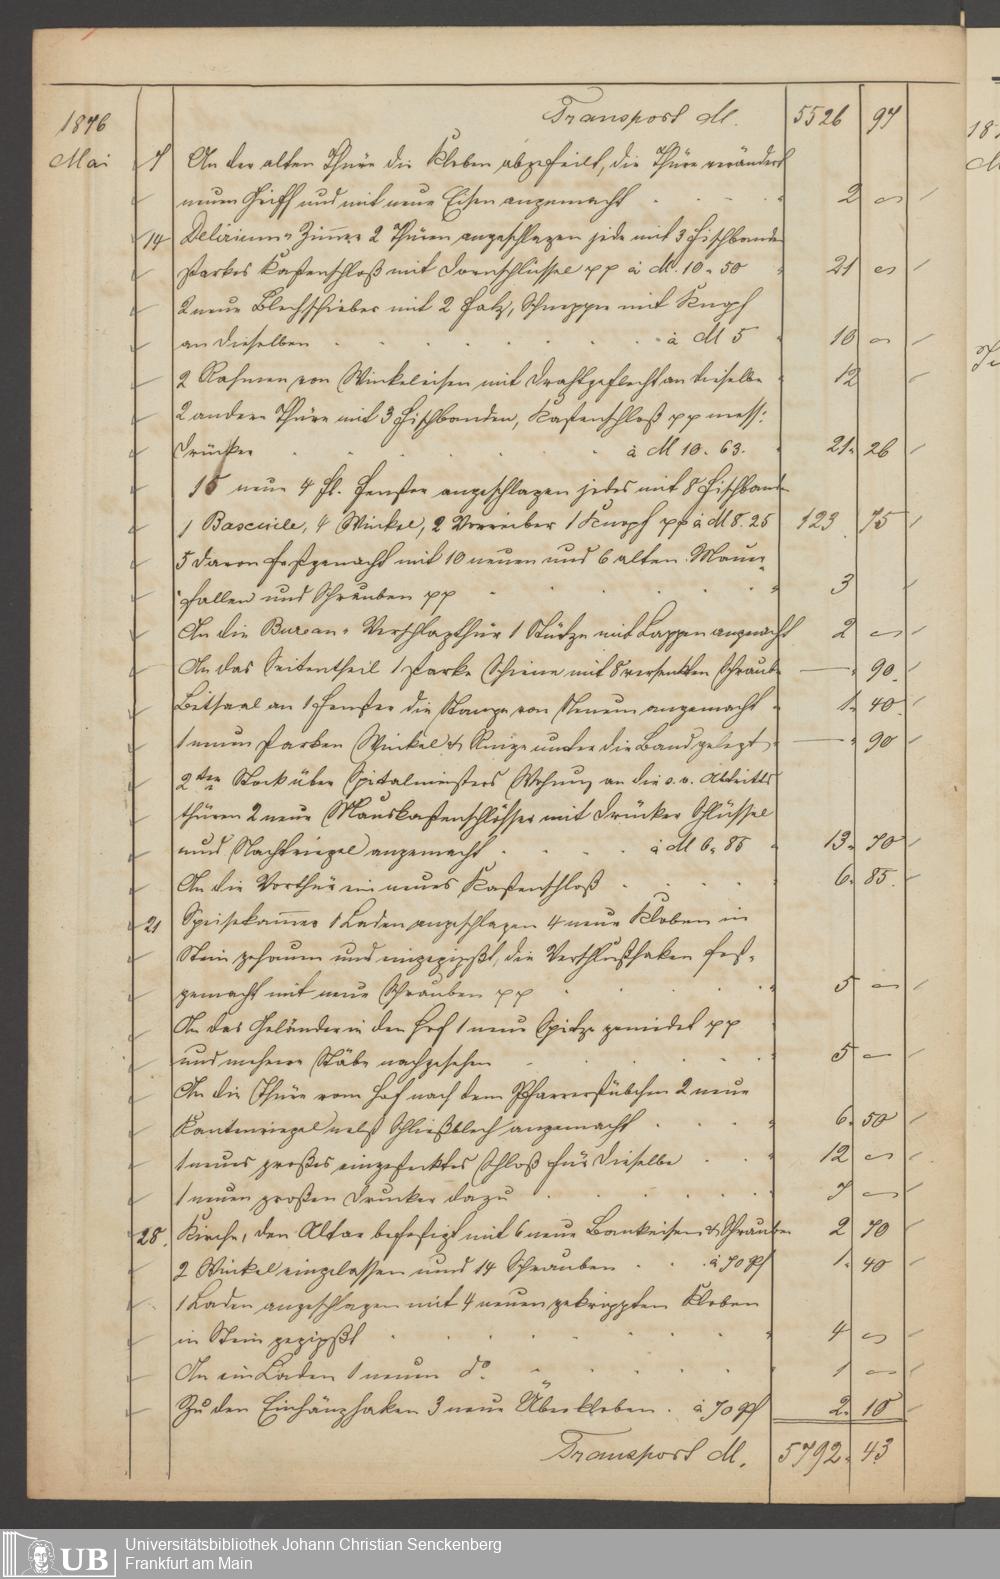 Transport M. 5526 97
1876
Mai 7 An der alten Thüre die Kloben abgefeilt, die Thüre verändert
neuen Griff und mit neue Eisen angemacht 2 —
14 Delirium-Zimmer 2 Thüren angeschlagen jede mit 3 Fischbande
starkes Kastenschloß mit Dornschlüssel pp à M. 10.50 21 —
2 neue Blechschieber mit 2 Falz, Schnepper mit Knopf
an dieselben à M 5 10 —
2 Rahmen von Winkeleisen mit Drahtgeflecht an dieselbe 12
2 andere Thüre mit 3 Fischbanden, Kastenschloß pp mess:
Drücker à M 10.63. 21. 26
15 neue 4 fl. Fenster angeschlagen jedes mit 8 Fischband
1 Bascuile, 4 Winkel, 2 Vorreiber 1 Knopf pp à M 8.25 123 75
5 davon festgemacht mit 10 neuen und 6 alten Mauer-
fallen und Schrauben pp 3
An die Bureau-Verschlagthür 1 Stütze mit Lappen angemacht 2 —
An das Seitentheil 1 starke Schiene mit 8 versenkten Schraub — 90.
Betsaal an 1 Fenster die Stange von Neuem angemacht 1. 40
1 neuen starken Winkel & Kniee unter die Band gelegt — 90
2ter Stock über Spitalmeisters Wohnung an die s. v. Abtritts
thüren 2 neue Mauskastenschlösser mit Drücker Schlüssel
und Nachtriegel angemacht à M 6.85 13. 70
An die Vorthür ein neues Kastenschloß 6. 85.
21 Speisekammer 1 Laden angeschlagen 4 neue Kloben in
Stein gehauen und eingegipßt, die Verschlußhaken fest-
gemacht mit neue Schrauben pp 5 —
An das Geländer in den Hof 1 neue Spitze genietet pp
und mehrere Stäbe nachgesehen 5 —
An die Thüre vom Hof nach dem Pfarrerstübchen 2 neue
Kantenriegel nebst Schließblech angemacht 6. 50
1 neues großes eingestecktes Schloß für dieselbe 12 —
1 neuen großen Drucker dazu 7 —
28. Kirche, den Altar befestigt mit 6 neue Bankeisen & Schrauben 2 70
2 Winkel eingelassen und 14 Schrauben à 70 Pf 1. 40
1 Laden angeschlagen mit 4 neuen gekröppten Kloben
in Stein gegipßt 4 —
An ein Laden 1 neuen do. 1 —
Zu den Einhänghaken 3 neue Überkloben. à 70 Pf 2. 10
Transport M. 5792. 43
UB Universitätsbibliothek Johann Christian Senckenberg
Frankfurt am Main